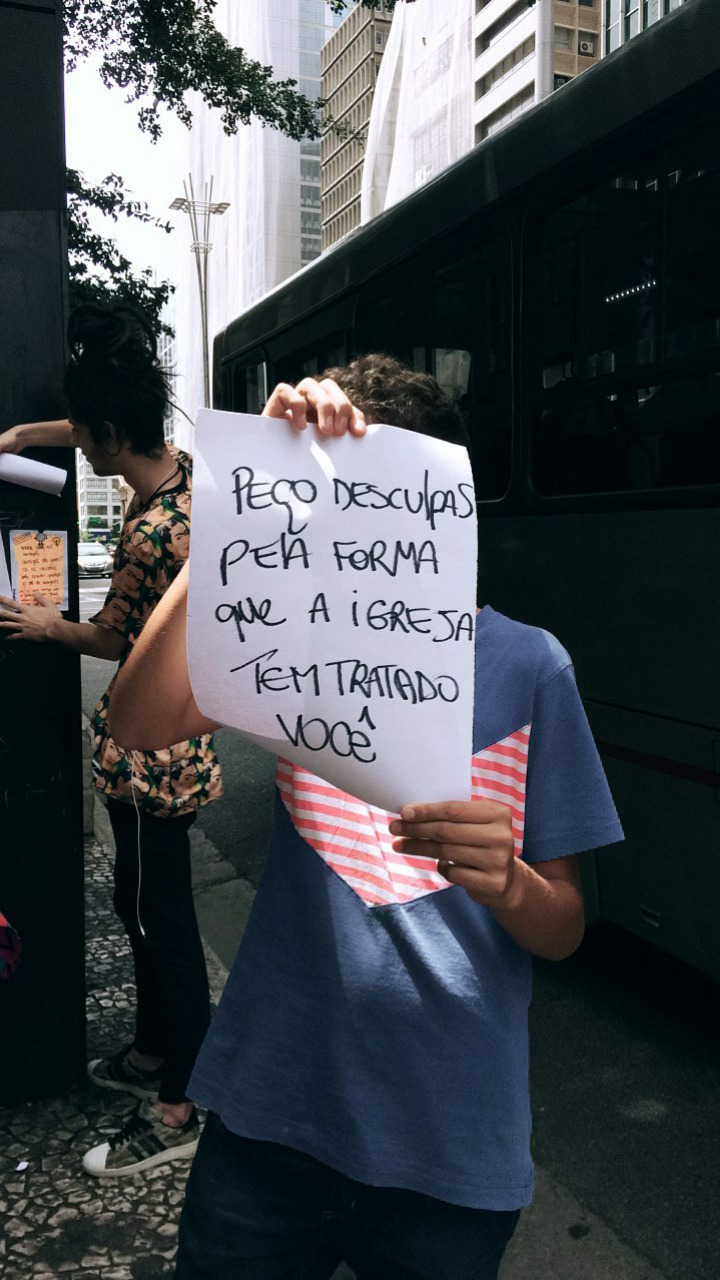 PEÇO DESCULPAS
PELA FORMA
que A iGREJA
TEM TRATADO
VOCÊ